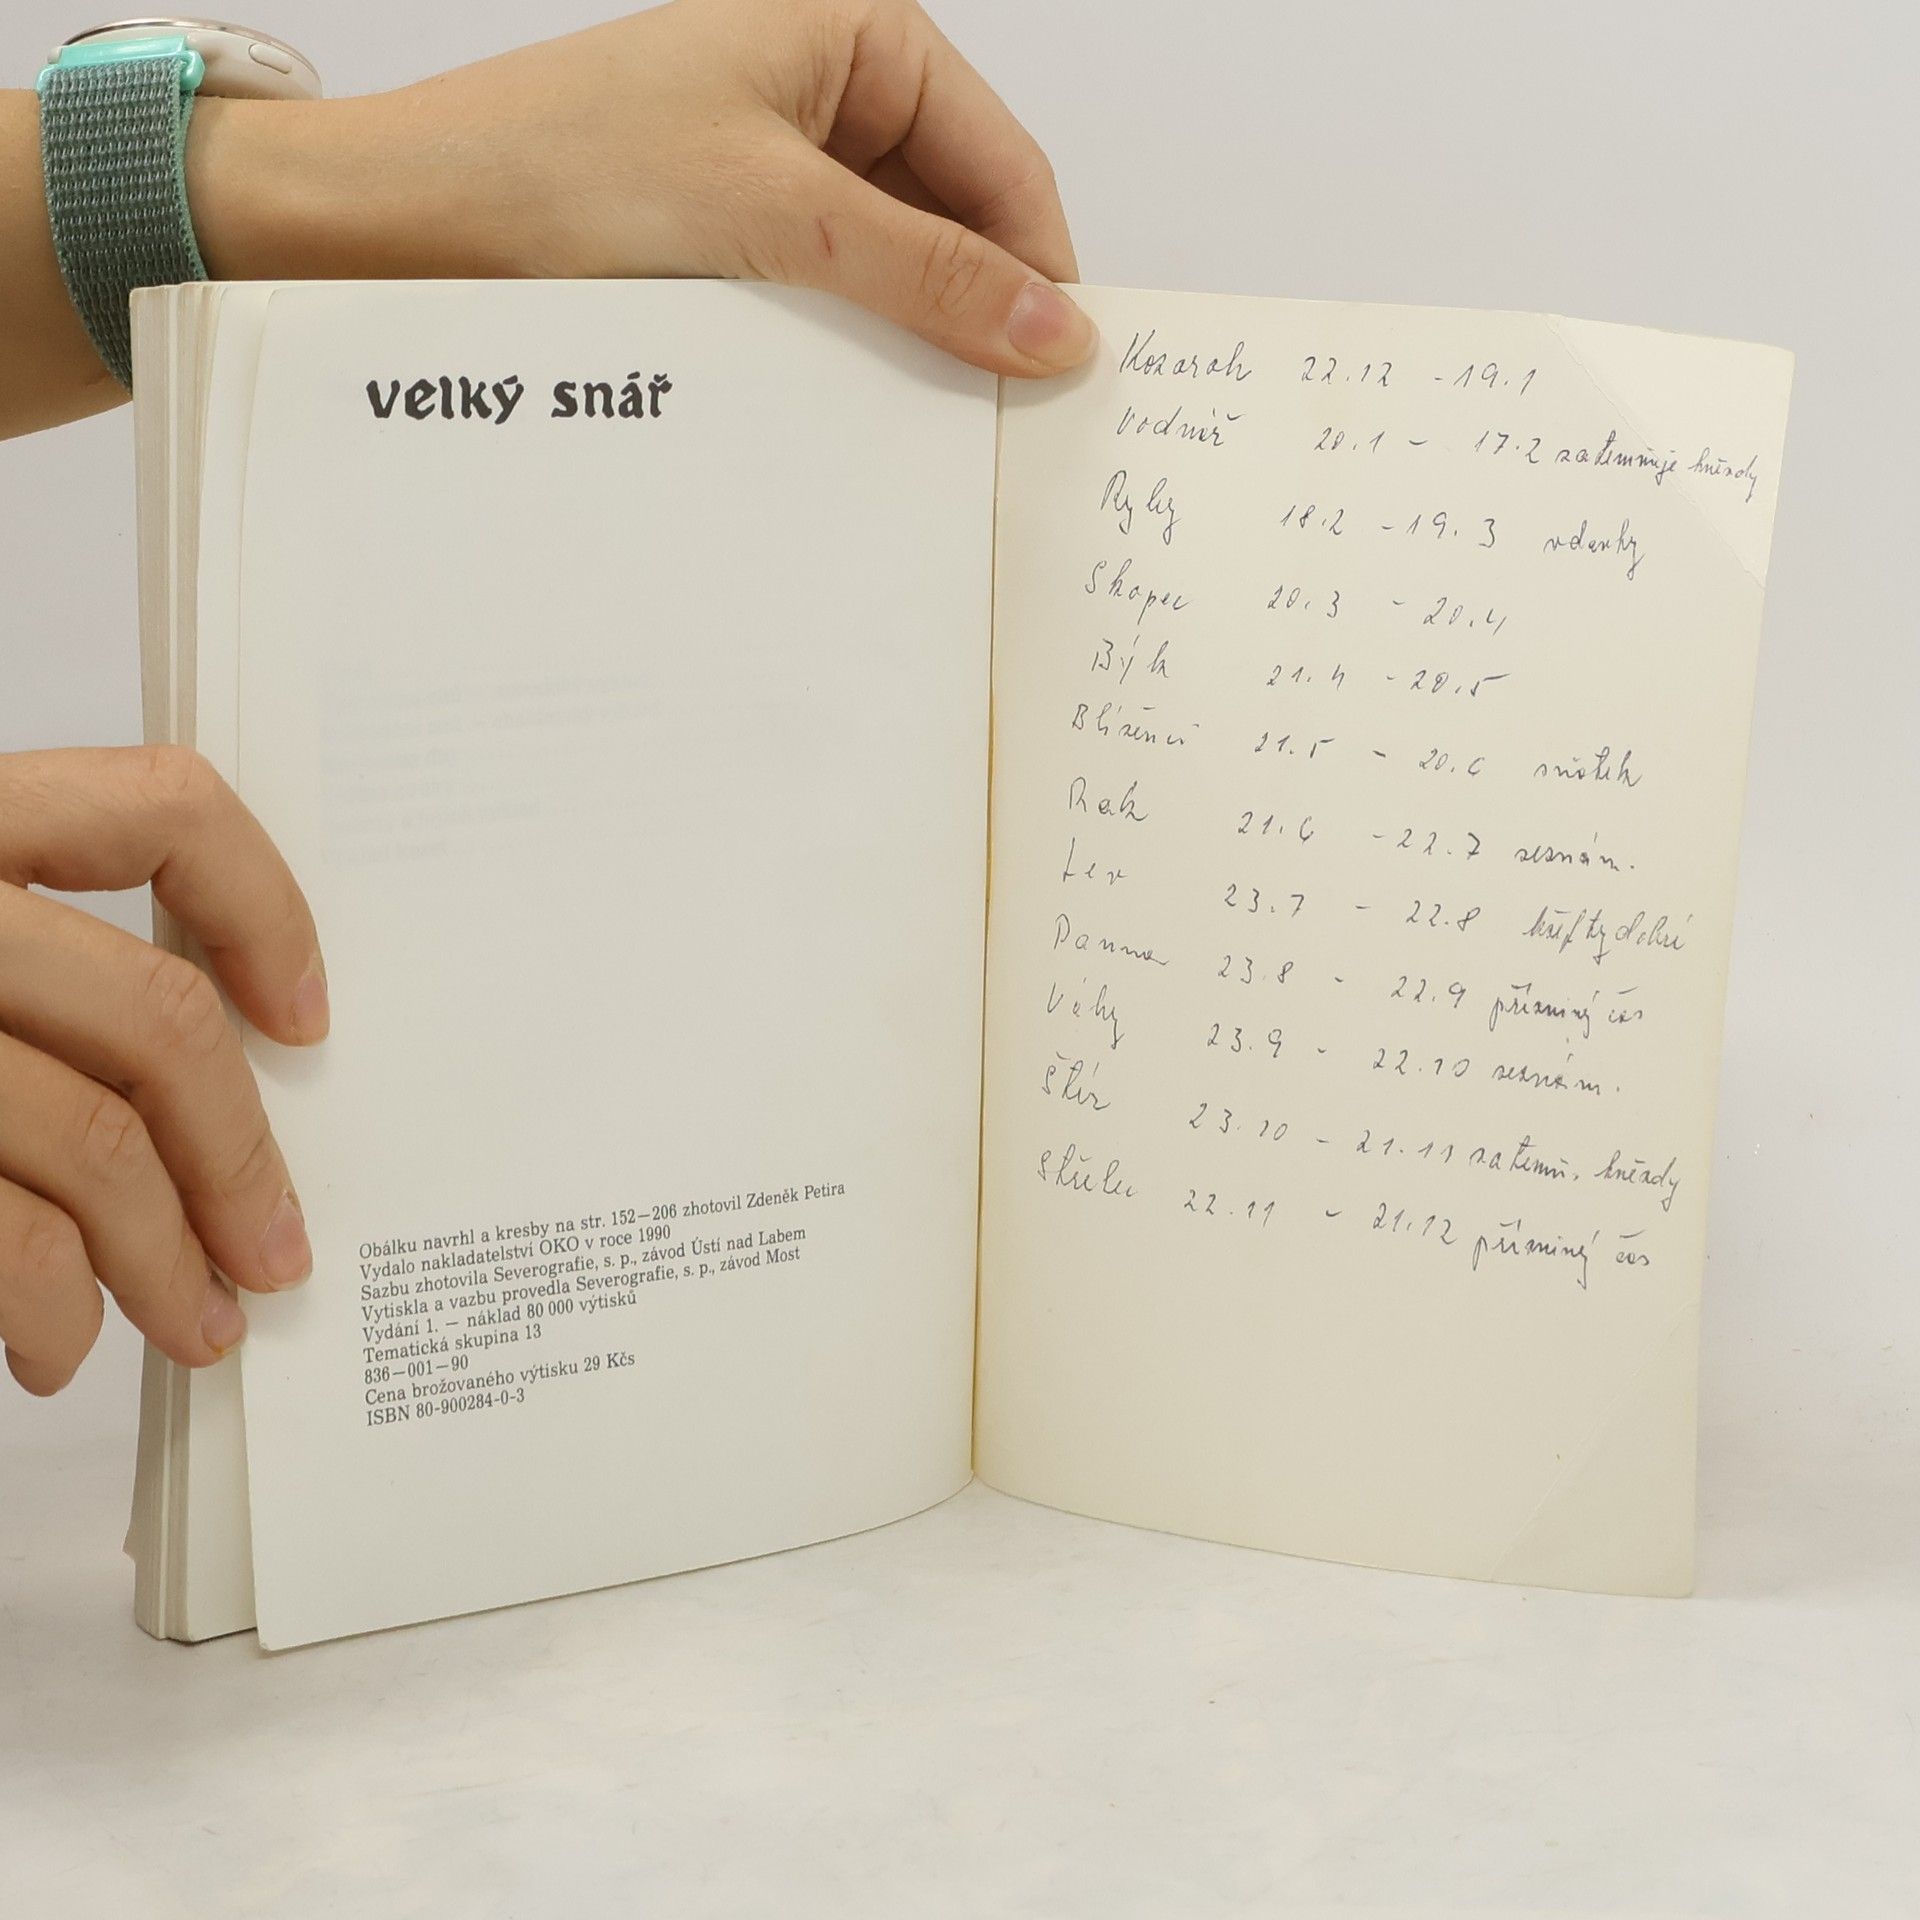 velký snář
Obálku navrhl a kresby na str. 152—206 zhotovil Zdeněk Petira
Vydalo nakladatelství OKO v roce 1990
Sazbu zhotovila Severografie, s. p., závod Ústí nad Labem
Vytiskla a vazbu provedla Severografie, s. p., závod Most
Vydání 1. — náklad 80 000 výtisků
Tematická skupina 13
836—001—90
Cena brožovaného výtisku 29 Kčs
ISBN 80-900284-0-3
Kozoroh 22.12 - 19.1
Vodnář 20.1 - 17.2 zatemňuje hvězdy
Ryby 18.2 - 19.3 vdavky
Skopec 20.3 - 20.4
Býk 21.4 - 20.5
Blíženci 21.5 - 20.6 sňatek
Rak 21.6 - 22.7 seznám.
Lev 23.7 - 22.8 kšefty dobré
Panna 23.8 - 22.9 příznivý čas
Váhy 23.9 - 22.10 seznám.
Štír 23.10 - 21.11 zatemň. hvězdy
Střelec 22.11 - 21.12 příznivý čas